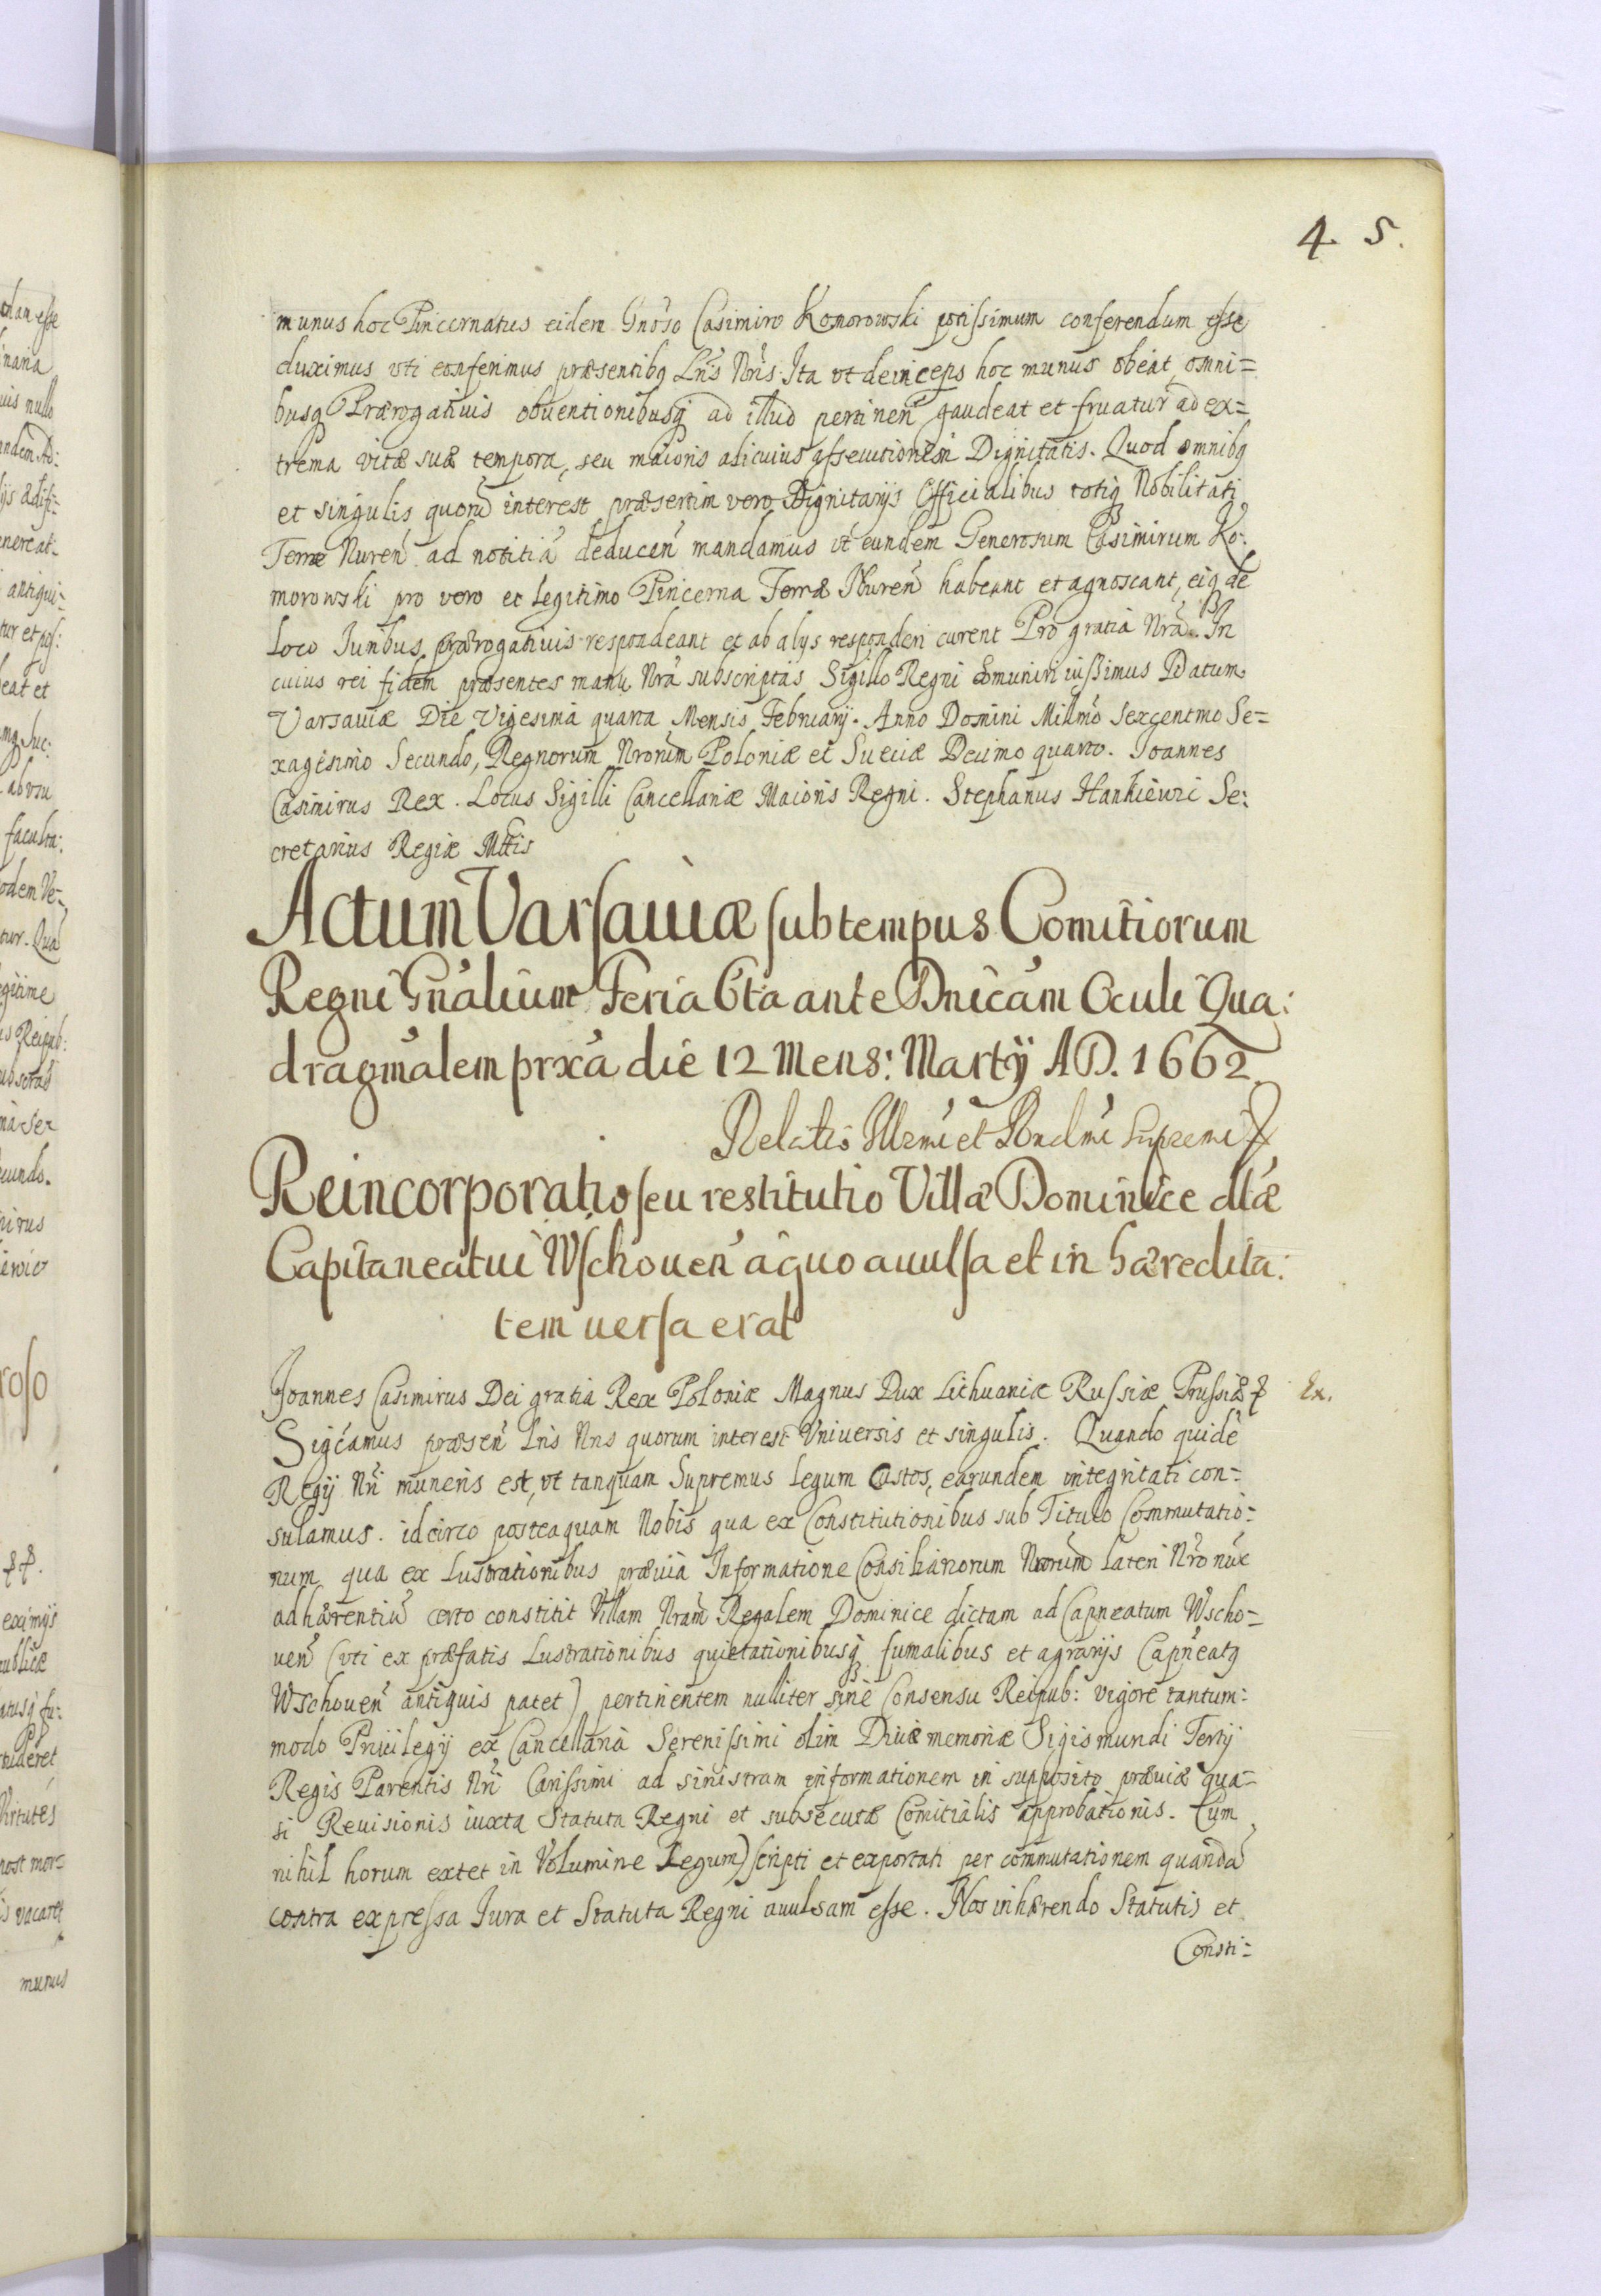 4. 5.
munus hoc Pincernatus eidem Gnoso Casimiro Komorowski potissimum conferendum esse
duximus vti conferimus præsentibq Lris Nris. Ita vt deinceps hoc munus obeat, omni=
busq Prærogatiuis obuentionibusq ad illud pertinen gaudeat et fruatur ad ex=
trema vitæ suæ tempora, seu maioris alicuius assecutionem Dignitatis. Quod omnibq
et singulis quoru interest præsertim vero Dignitarijs Officialibus totiq Nobilitati
Terræ Nuren ad notitia deducen mandamus vt eundem Generosum Casimirum Ko:
morowski pro vero et legitimo Pincerna Terræ Nuren habeant et agnoscant, eiq de
loco Iuribus prærogatiuis respondeant et ab alys responderi curent Pro gratia Nra. In
cuius rei fidem præsentes manu Nra subscriptas Sigillo Regni comuniri iussimus Datum
Varsauiæ Die Vigesima quarta Mensis Februarij. Anno Domini Millmo Sexcentmo Se=
xagesimo Secundo, Regnorum Nrorum Poloniæ et Sueciæ Decimo quarto. Ioannes
Casimirus Rex. Locus Sigilli Cancellariæ Maioris Regni. Stephanus Hankiewic Se:
cretarius Regiæ Mttis
Actum Varsauiæ sub tempus Comitiorum
Regni Gnalium Feria 6ta ante Dnicam Oculi Qua:
dragmalem prxa die 12 Mens: Martij AD. 1662.
Relatio Illrmi et Rndmi Supremi
Reincorporatio seu restitutio Villæ Dominice dtæ
Capitaneatui Wschouen a quo auulsa et in hæredita:
tem uersa erat
Joannes Casimirus Dei gratia Rex Poloniæ Magnus Dux Lithuaniæ Russiæ Prussiæ Ex.
Sigcamus præsen Lris Nris quorum interest Vniuersis et singulis. Quando quide
Regij Nri muneris est, vt tanquam Supremus legum Custos, earundem integritati con=
sulamus. idcirco posteaquam Nobis qua ex Constitutionibus sub Titulo Commutatio=
num qua ex Lustrationibus præuia Informatione Consiliariorum Nrorum lateri Nro nuc
adhærentiu certo constitit Villam Nram Regalem Dominice dictam ad Capneatum Wscho=
uen (vti ex præfatis Lustrationibus quietationibusq fumalibus et agrarijs Capneatq
Wschouen antiquis patet) pertinentem nulliter sine Consensu Reipub: vigore tantum=
modo Priuilegij ex Cancellaria Serenissimi olim Diuæ memoriæ Sigismundi Tertij
Regis Parentis Nri Carissimi ad sinistram informationem in supposito præuiæ qua=
si Reuisionis iuxta Statuta Regni et subsecutæ Comitialis approbationis. Cum
nihil horum extet in Volumine Legum) scripti et exportati per commutationem quanda
contra expressa Iura et Statuta Regni auulsam esse. Nos inhærendo Statutis et
Consti=